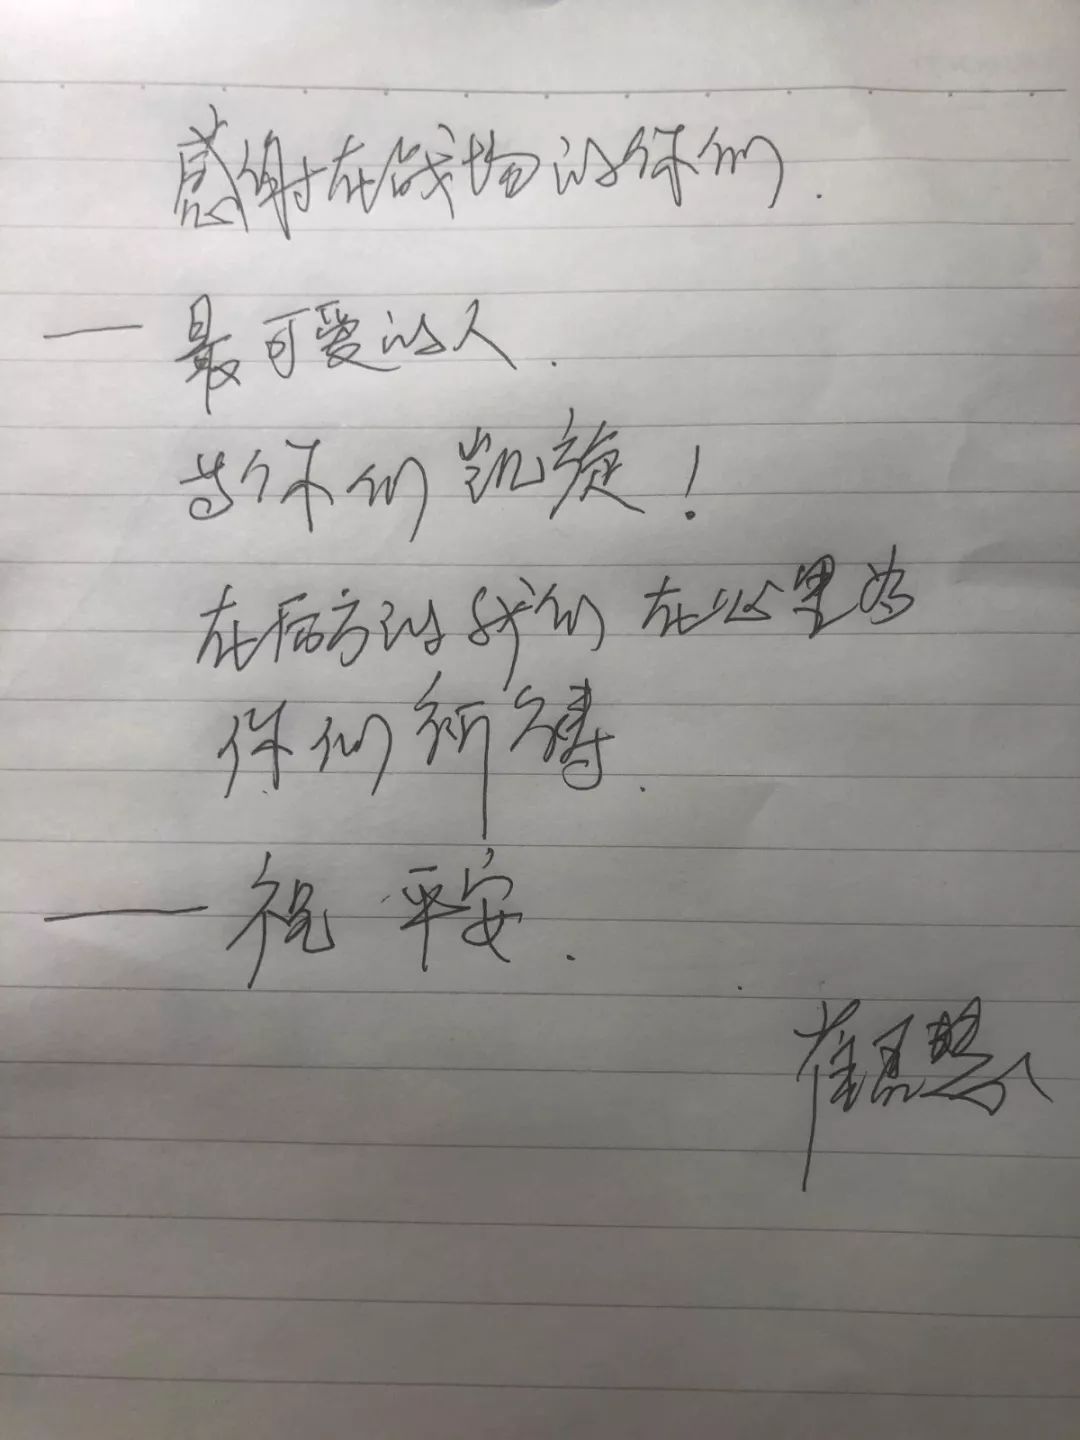 感谢在战场的你们.
——最可爱的人.
等你们凯旋!
在后方的我们在心里为
你们祈祷.
——祝 平安.